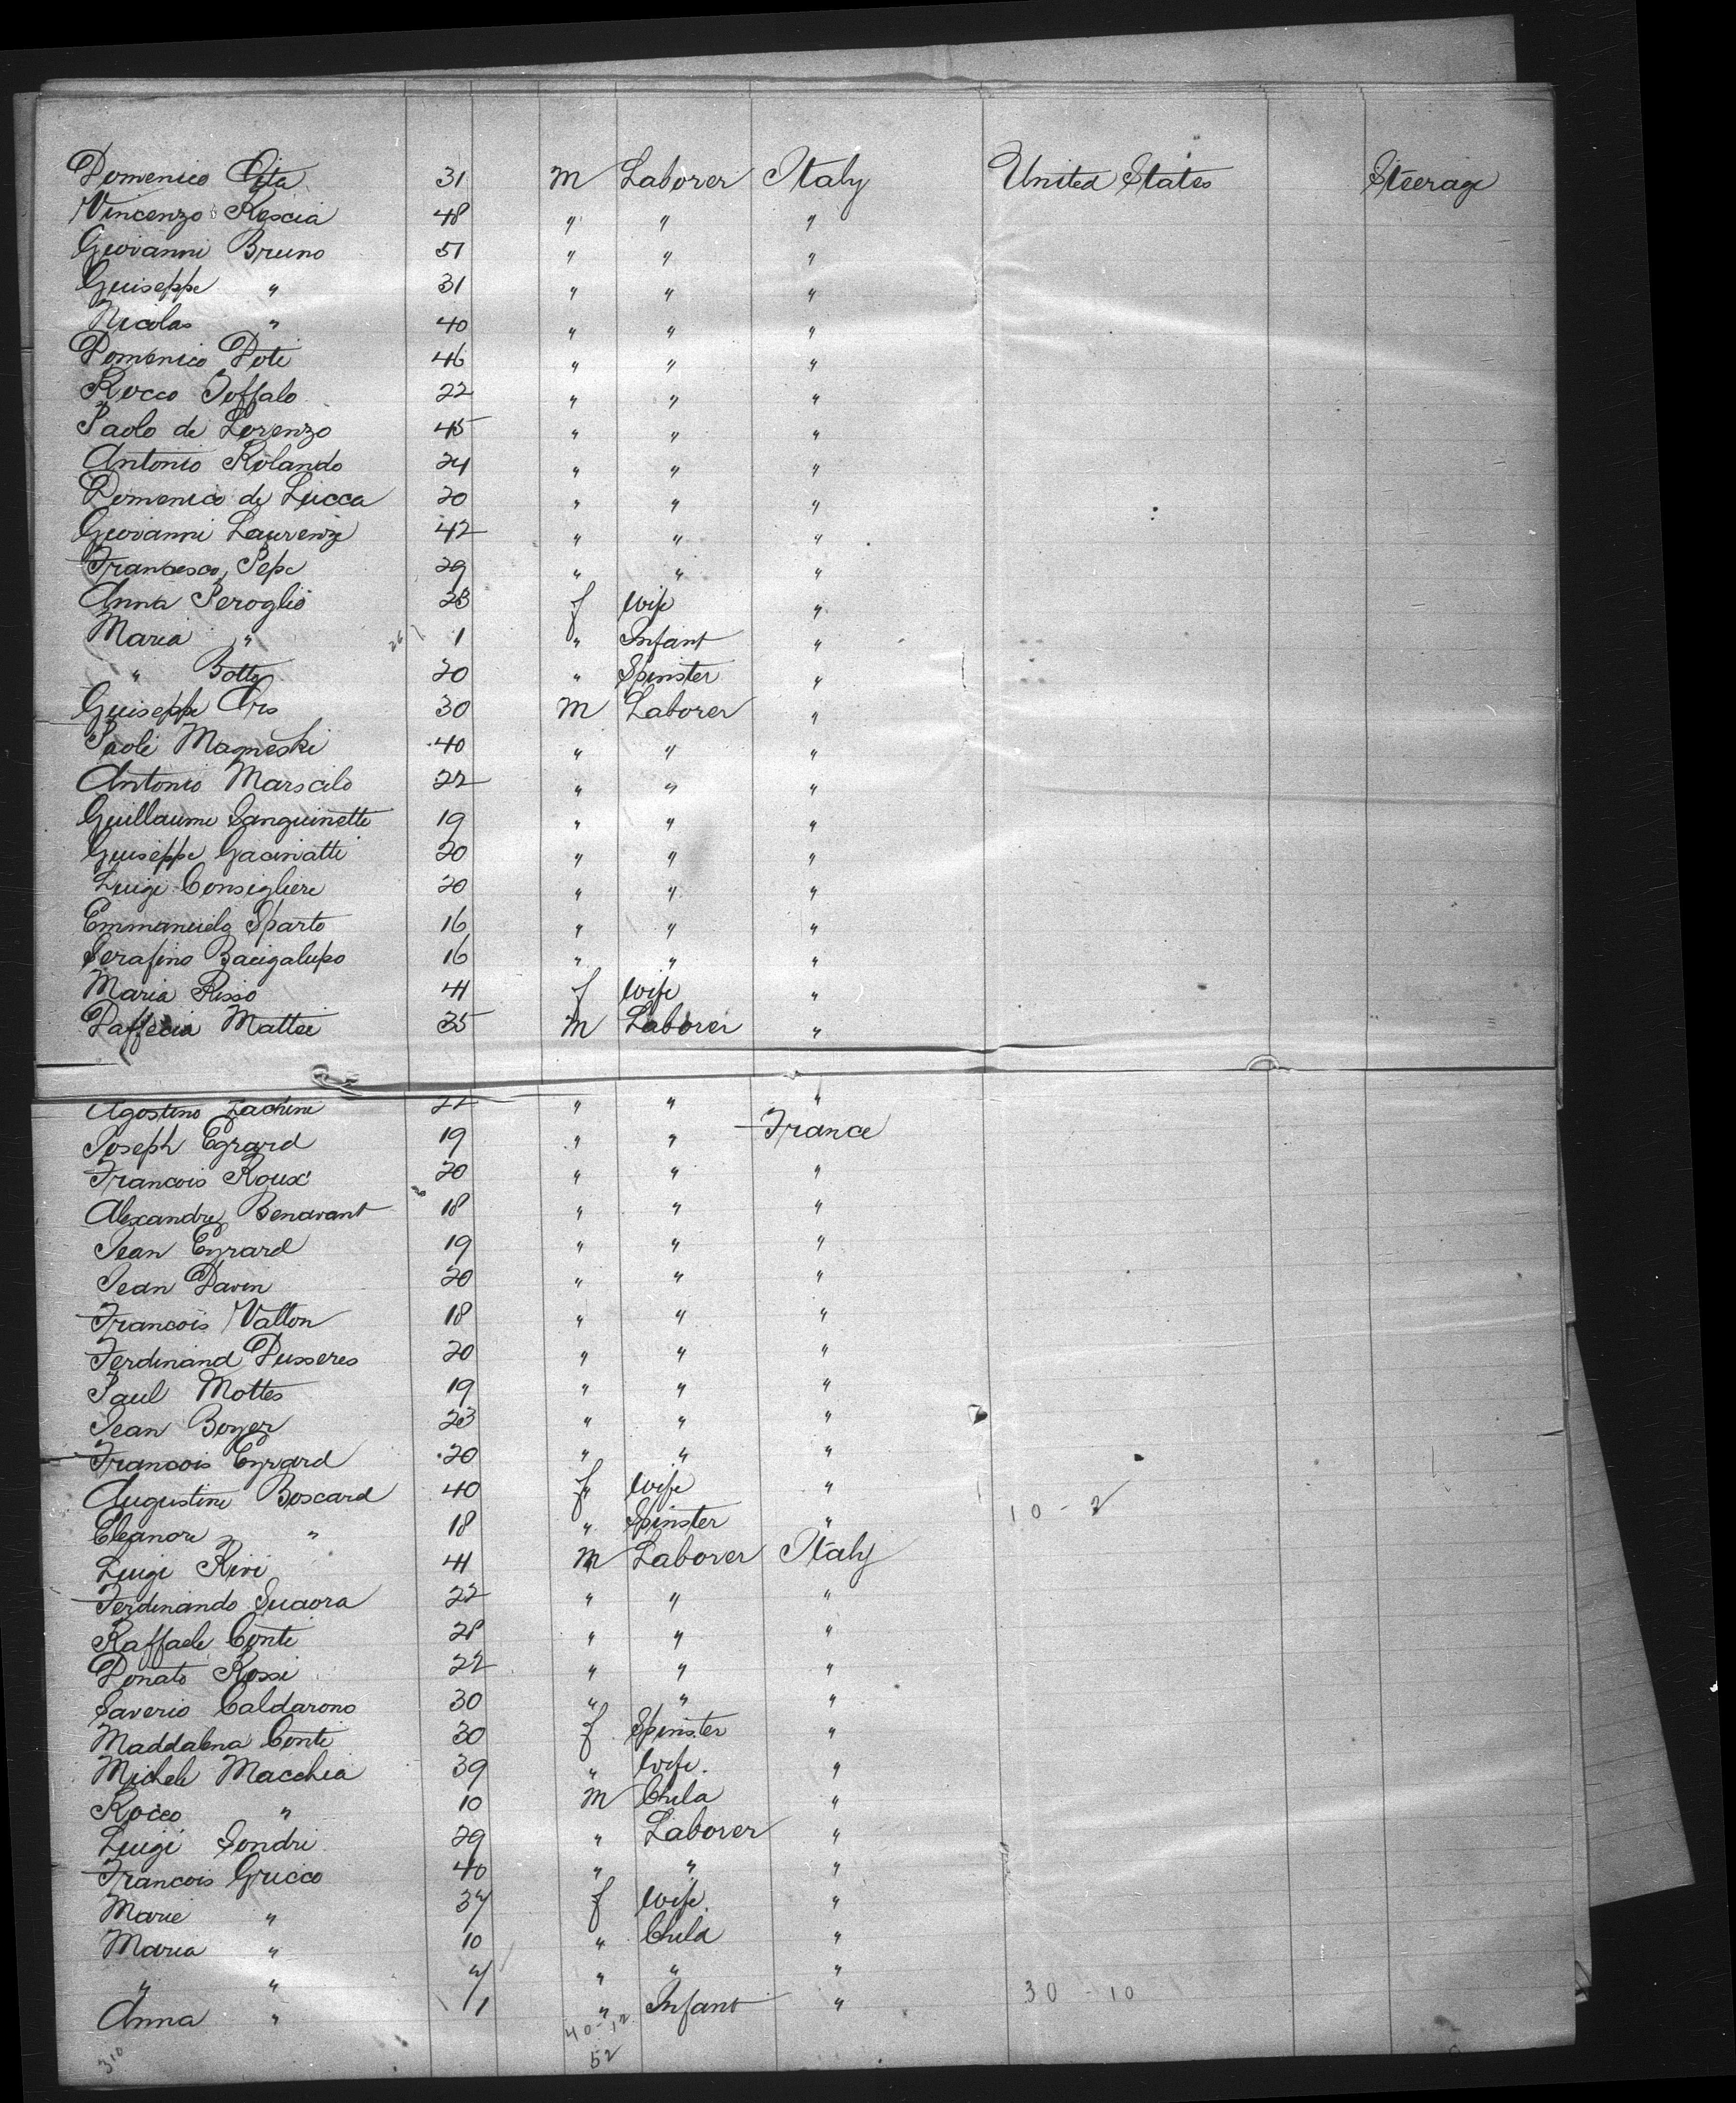 Domenico Cita 31 m Laborer Italy United States Steerage
Vincenzo Rescia 48 " " "
Giovanni Bruno 51 " " "
Guiseppe " 31 " " "
Nicolas " 40 " " "
Domenico Doti 46 " " "
Rocco Toffalo 22 " " "
Paolo de Lorenzo 45 " " "
Antonio Rolando 24 " " "
Domenico de Lucca 20 " " "
Giovanni Laurenzi 42 " " "
Francesco Pepe 29 " " "
Anna Peroglio 23 f Wife "
Maria " 1 " Infant "
" Botto 20 " Spinster "
Guiseppe Oro 30 m Laborer "
Paoli Magneski 40 " " "
Antonio Marscilo 22 " " "
Guillaume Sanguinette 19 " " "
Guiseppe Gacinatti 20 " " "
Luigi Consigliere 20 " " "
Emmanuelo Sparto 16 " " "
Serafino Bacigalupo 16 " " "
Maria Risso 41 f Wife "
Daffecia Mattei 35 m Laborer "
Agostino Zachini 22 " " "
Joseph Egrard 19 " " France
Francois Roux 20 " " "
Alexandre Benavant 18 " " "
Jean Eyrard 19 " " "
Jean Davin 20 " " "
Francois Vallon 18 " " "
Ferdinand Dusseres 20 " " "
Paul Mottes 19 " " "
Jean Boyer 23 " " "
Francois Eyrard 20 " " "
Augustine Boscard 40 f Wife " 10 - 2
Eleanore " 18 " Spinster "
Luigi Rivi 41 m Laborer Italy
Ferdinando Suaora 22 " " "
Raffaele Conti 28 " " "
Donato Rossi 22 " " "
Saverio Caldarono 30 " " "
Maddalena Conti 30 f Spinster "
Michele Macchia 39 " Wife "
Rocco " 10 m Child "
Luigi Sondri 29 " Laborer "
Francois Gricco 40 " " "
Marie " 37 f Wife "
Maria " 10 " Child "
" " 7 " " "
Anna " 1 " Infant " 30 - 10
40-12
310 52